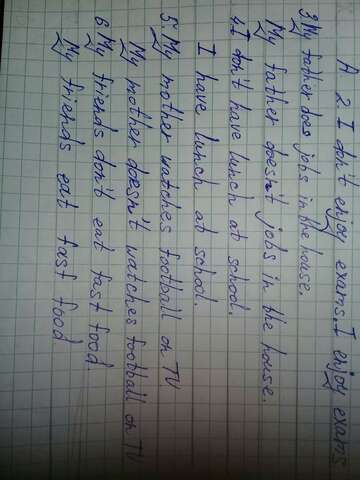 A 2 I don't enjoy exams. I enjoy exams
3 My father does jobs in the house.
My father doesn't jobs in the house.
4 I don't have lunch at school.
I have lunch at school.
5 My mother watches football on TV
My mother doesn't watches football on TV
6 My friends don't eat fast food
My friends eat fast food